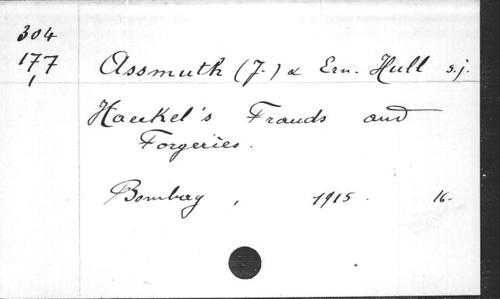 304
177
1
Assmuth (J.) & Ern. Hull s.j.
Haeckel's Frauds and
Forgeries.
Bombay, 1915. 16-